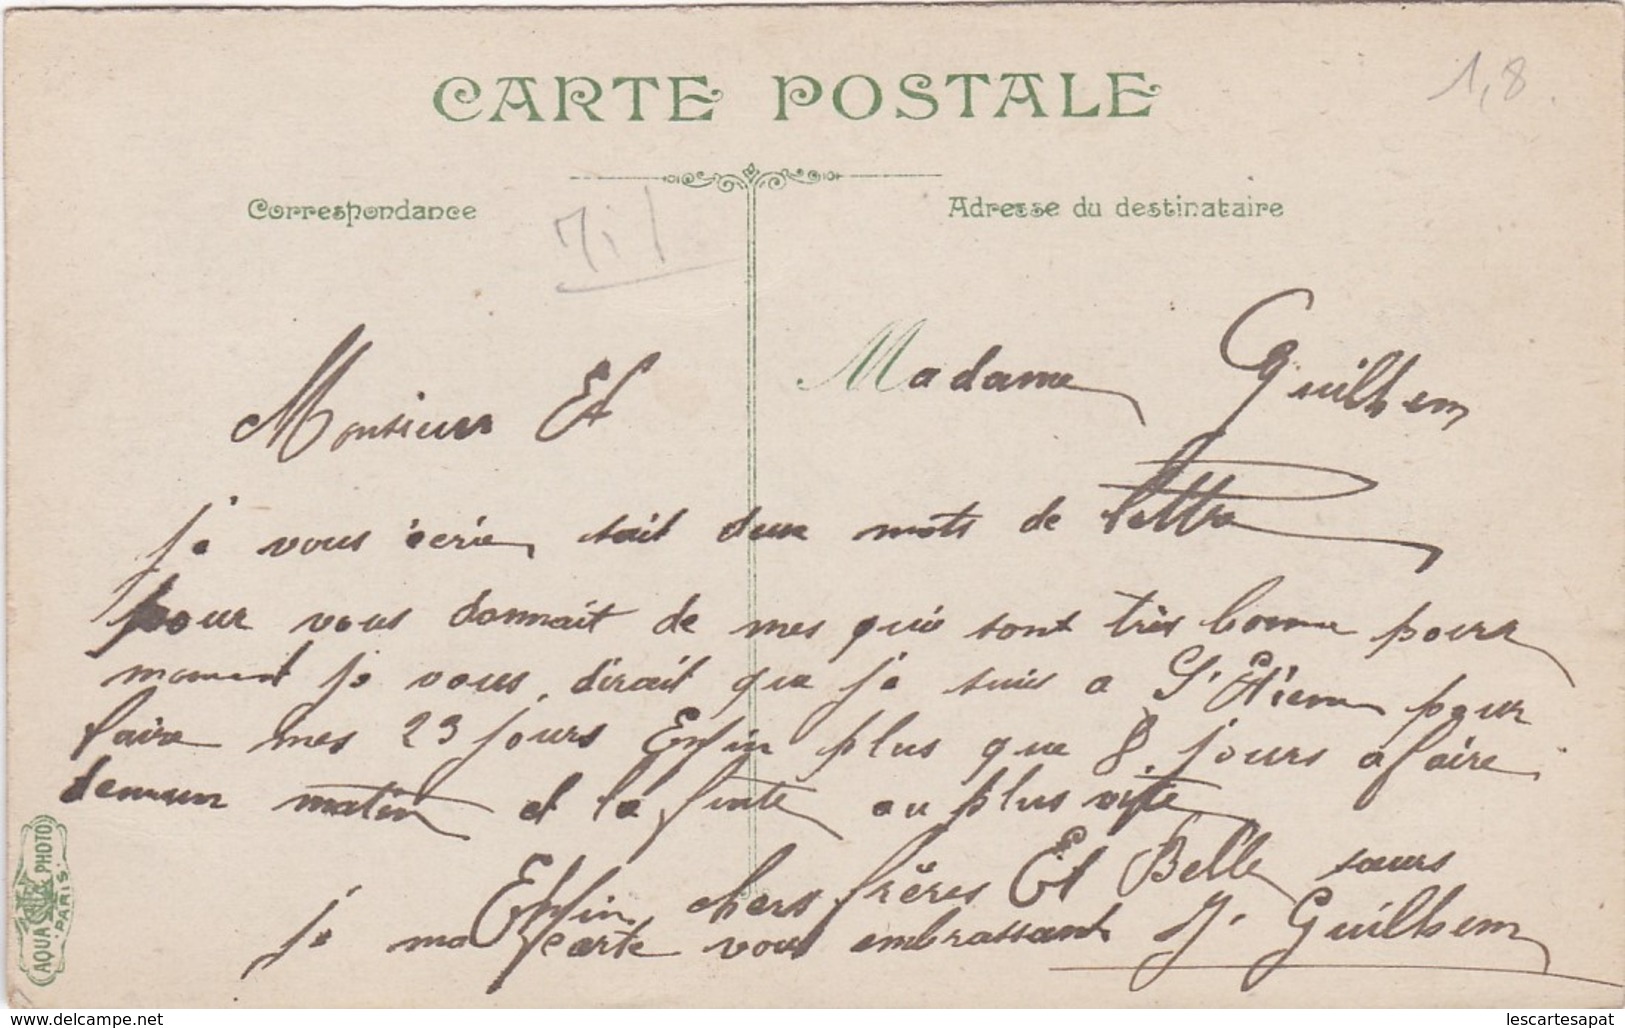 CARTE POSTALE
1,8
Correspondance
Adresse du destinataire
Monsieur Et Madame Guilhem
je vous écrie sait deux mots de lettre
pour vous donnait de mes quis sont très bonne pour
moment je vous dirait que je suis a St Etienne pour
faire mes 23 jours Enfin plus que 8 jours a faire
demain matin et la fuite au plus vite
Enfin chers frères Et Belle sœurs
je ma carte vous embrassant J. Guilhem
AQUA PHOTO
PARIS
www.delcampe.net
lescartesapat